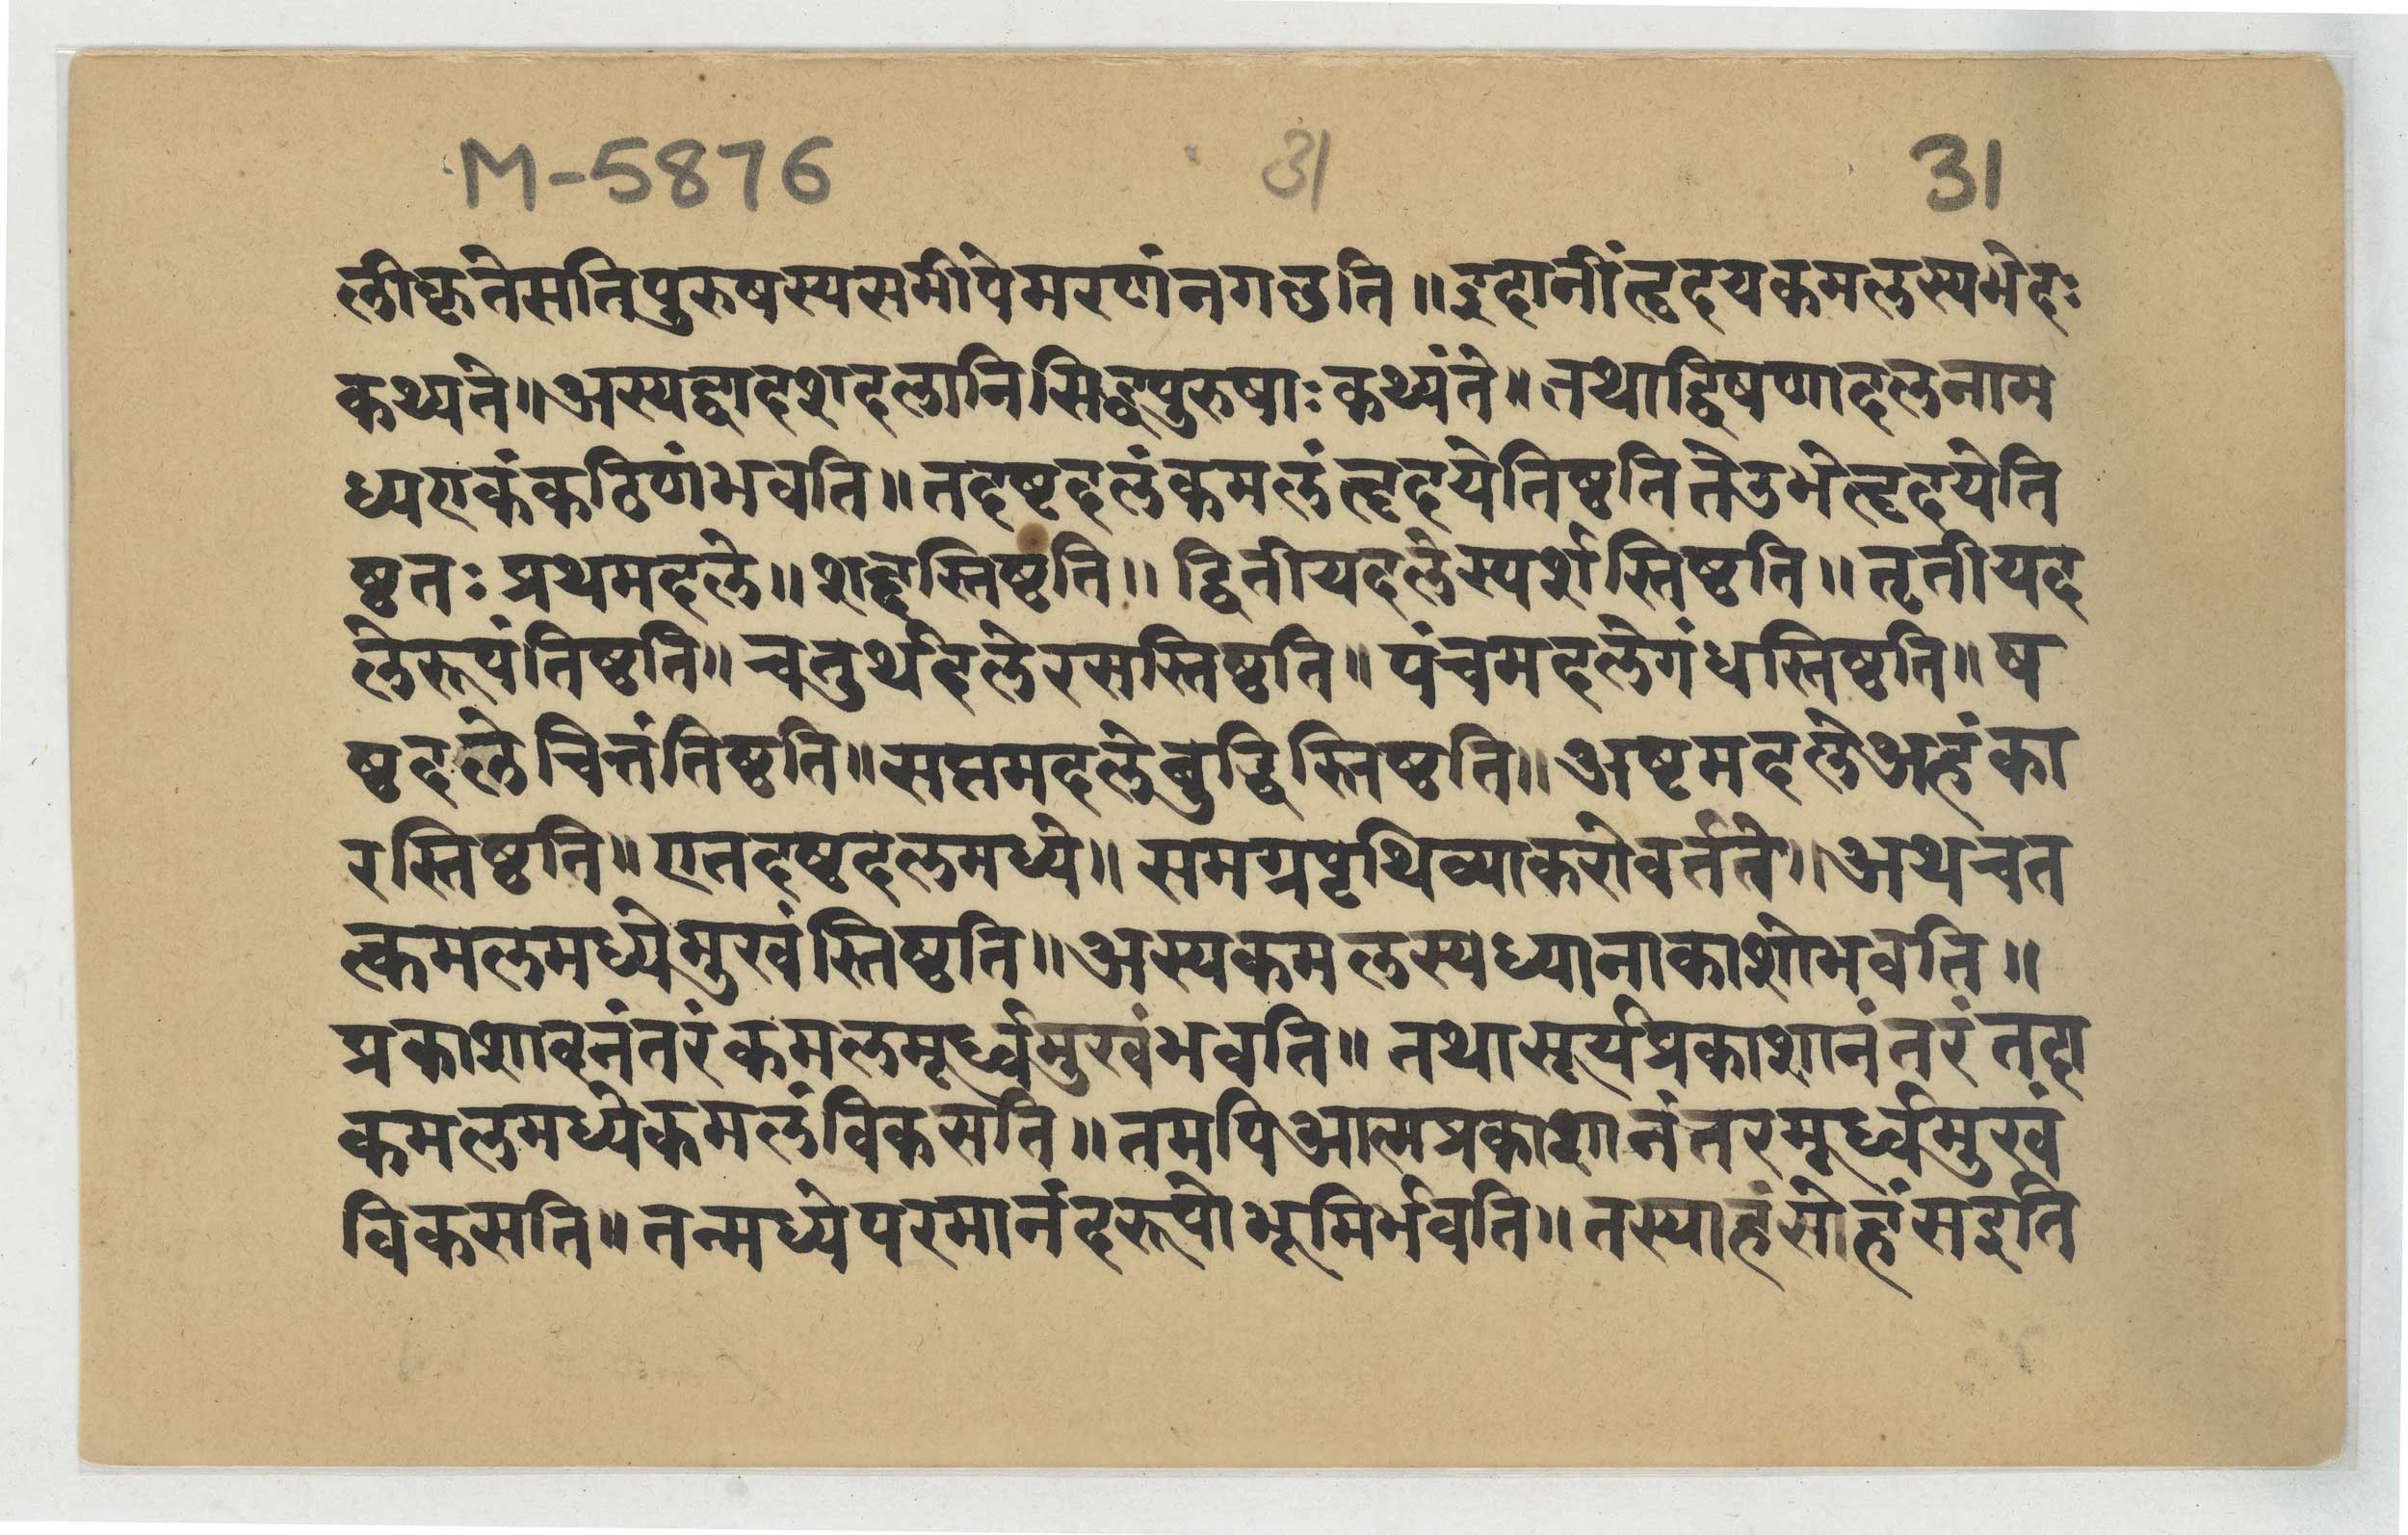 M-5876 31 31
लीकृतेसतिपुरुषस्यसमीपेमरणंनगछति॥इदानींत्हृदयकमलस्यभेदः
कथ्यते॥अस्यद्वादशदलानिसिद्धपुरुषाःकथ्यंते॥तथाद्विषणादलनाम
ध्यएकंकठिणंभवति॥तदष्टदलंकमलंत्हृदयेतिष्ठतितेउभेत्हृदयेति
ष्ठतःप्रथमदले॥शब्दस्तिष्ठति॥द्वितीयदलेस्पर्शस्तिष्ठति॥तृतीयद
लेरूपंतिष्ठति॥चतुर्थदलेरसस्तिष्ठति॥पंचमदलेगंधस्तिष्ठति॥ष
ष्ठदलेचित्तंतिष्ठति॥सप्तमदलेबुद्धिस्तिष्ठति॥अष्टमदलेअहंका
रस्तिष्ठति॥एतदष्टदलमध्ये॥समग्रपृथिव्याकरोवर्तते॥अथचत
त्कमलमध्येमुखंस्तिष्ठति॥अस्यकमलस्यध्यानाकाशोभवति॥
प्रकाशावनंतरंकमलमूर्ध्वमुखंभवति॥तथासूर्यप्रकाशानंतरंतदा
कमलमध्येकमलंविकसति॥तमपिआत्मप्रकाशानंतरमूर्ध्वमुखं
विकसति॥तन्मध्येपरमानंदरूपोभूमिर्भवति॥तस्याहंसोहंसइति